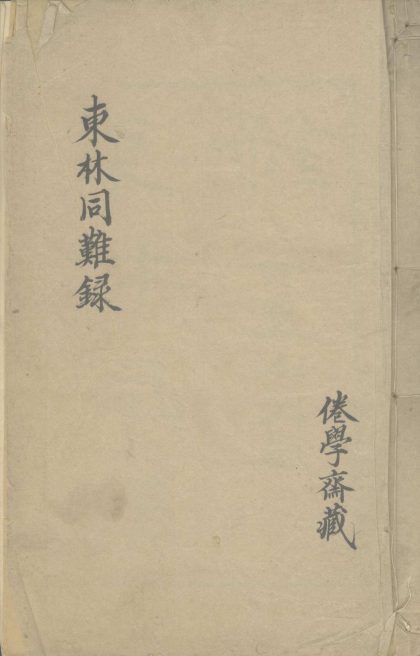 東林同難録
倦學齋藏